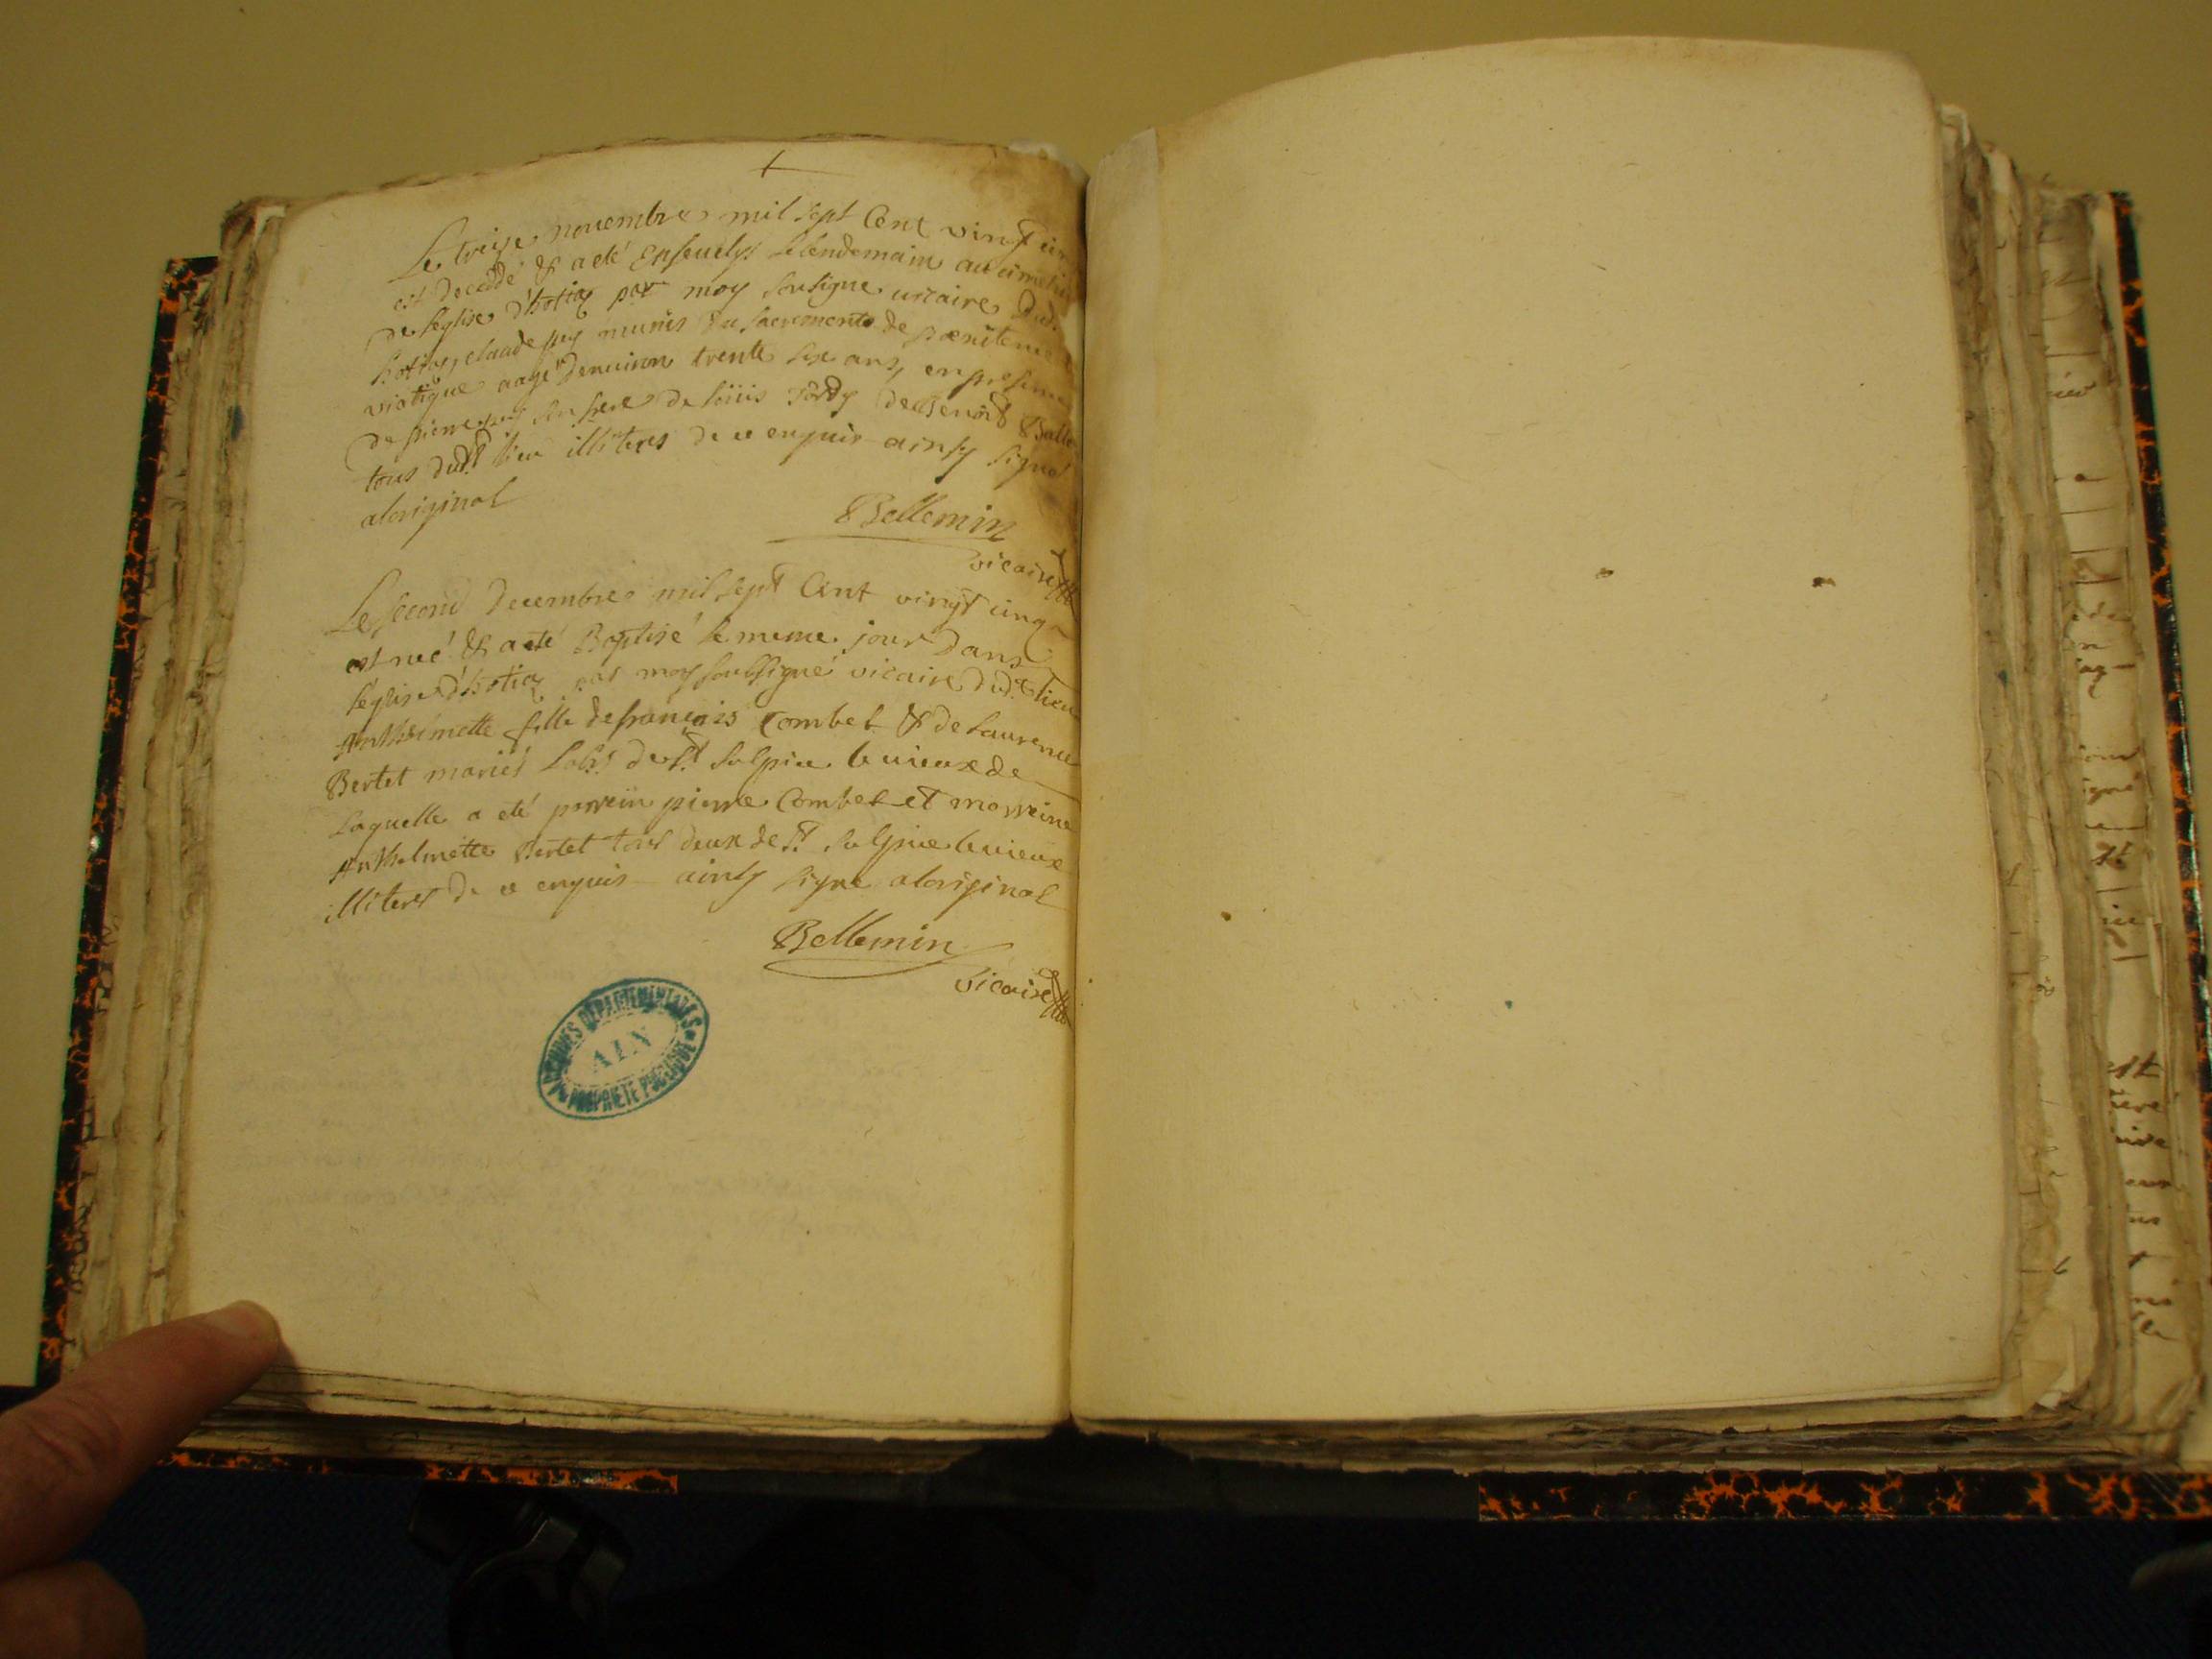 Le treize novembre mil sept Cent vingt cin
est decedé & a eté Ensevelys le lendemain au cimeti
de leglise d'hotia par moy soussigne vicaire dud.
hotia, claude munis du sacrements de poenitence
viatique aagé d'environ trente six ans, en presence
de pierre son frere de loüis de Benoit
tous dud.t lieu illiteres de ce enquis ainsy signé
aloriginal
Bellemin
vicaire
Le second decembre mil sept Cent vingt cinq
est neé & a eté Baptisé le meme jour dans
léglise d'hotia par moy soubsigné vicaire dud.t lieu
Anthelmette fille de francois Combet & de Laurence
Bertet mariés de S.t Sulpice le vieux de
Laquelle a eté parrein pierre Combet et marreine
Anthelmette Bertet tous deux de S.t Sulpice le vieux
illiteres de ce enquis ainsy signe aloriginal
Bellemin
vicaire
ARCHIVES DÉPARTEMENTALES
AIN
PROPRIÉTÉ PUBLIQUE